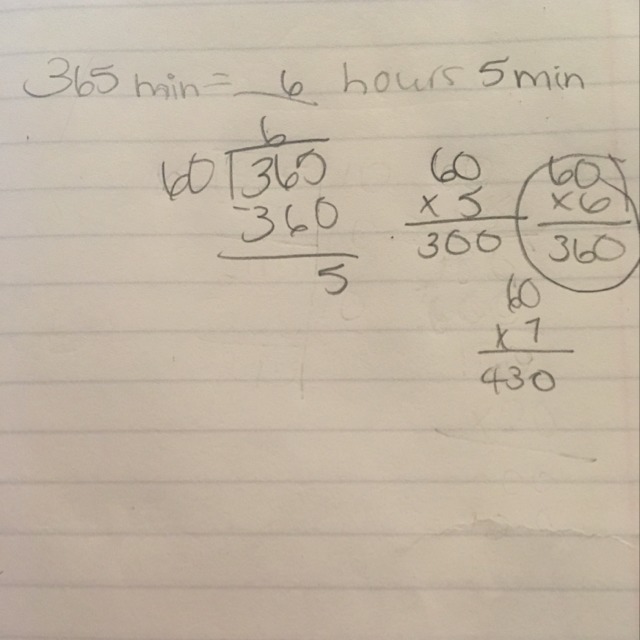 365 min = 6 hours 5 min
6
60 365
-360
5
60
x 5
300
60
x 6
360
60
x 7
430